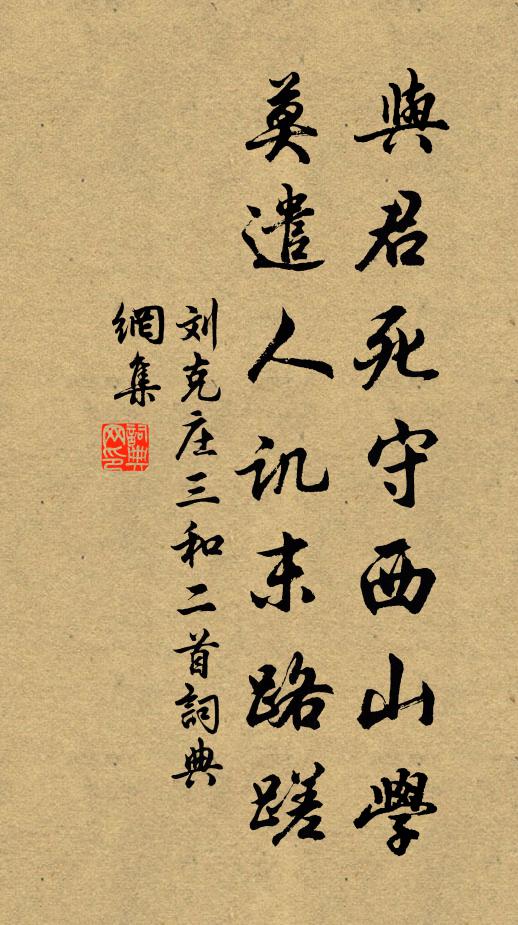 與君死守西山學
莫遣人讥末路蹉
刘克庄三和二首詞典
網集
詞典网印